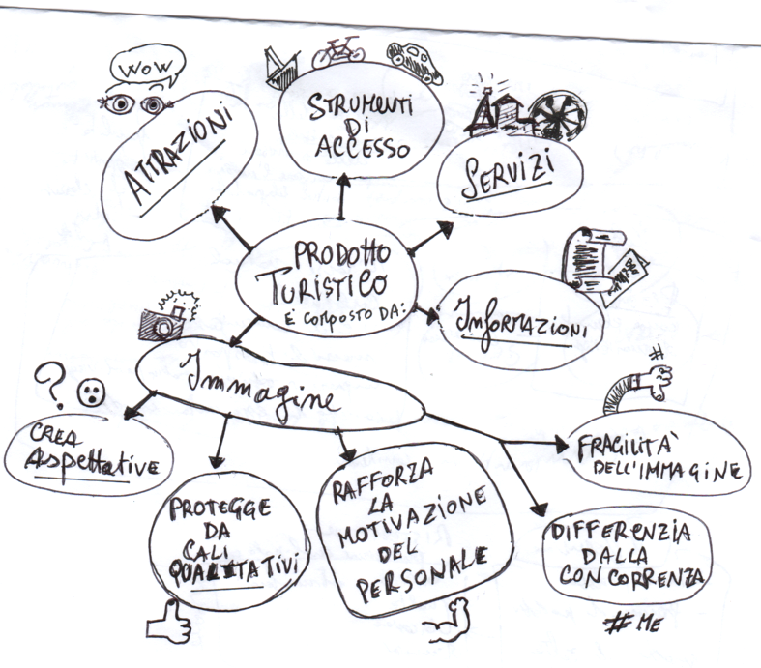 WOW
ATTRAZIONI
STRUMENTI
DI
ACCESSO
SERVIZI
PRODOTTO
TURISTICO
È COMPOSTO DA:
INFORMAZIONI
Immagine
?
CREA
Aspettative
PROTEGGE
DA
CALI
QUALITATIVI
RAFFORZA
LA
MOTIVAZIONE
DEL
PERSONALE
#
FRAGILITÀ
DELL'IMMAGINE
DIFFERENZIA
DALLA
CONCORRENZA
# ME